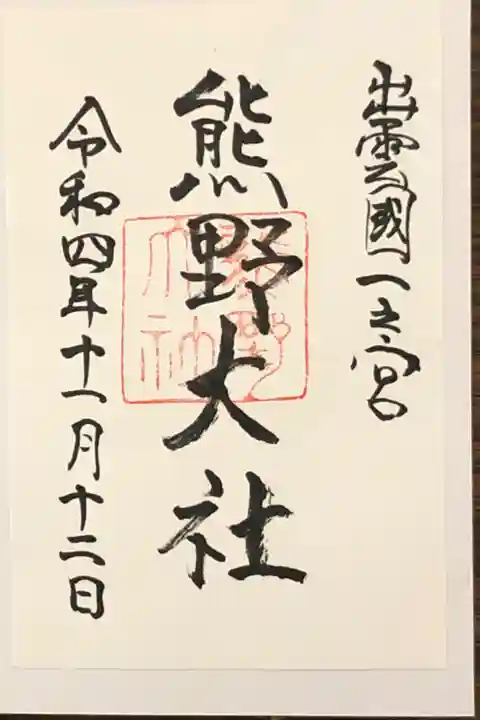 出雲國一之宮
熊野大社
令和四年十一月十二日